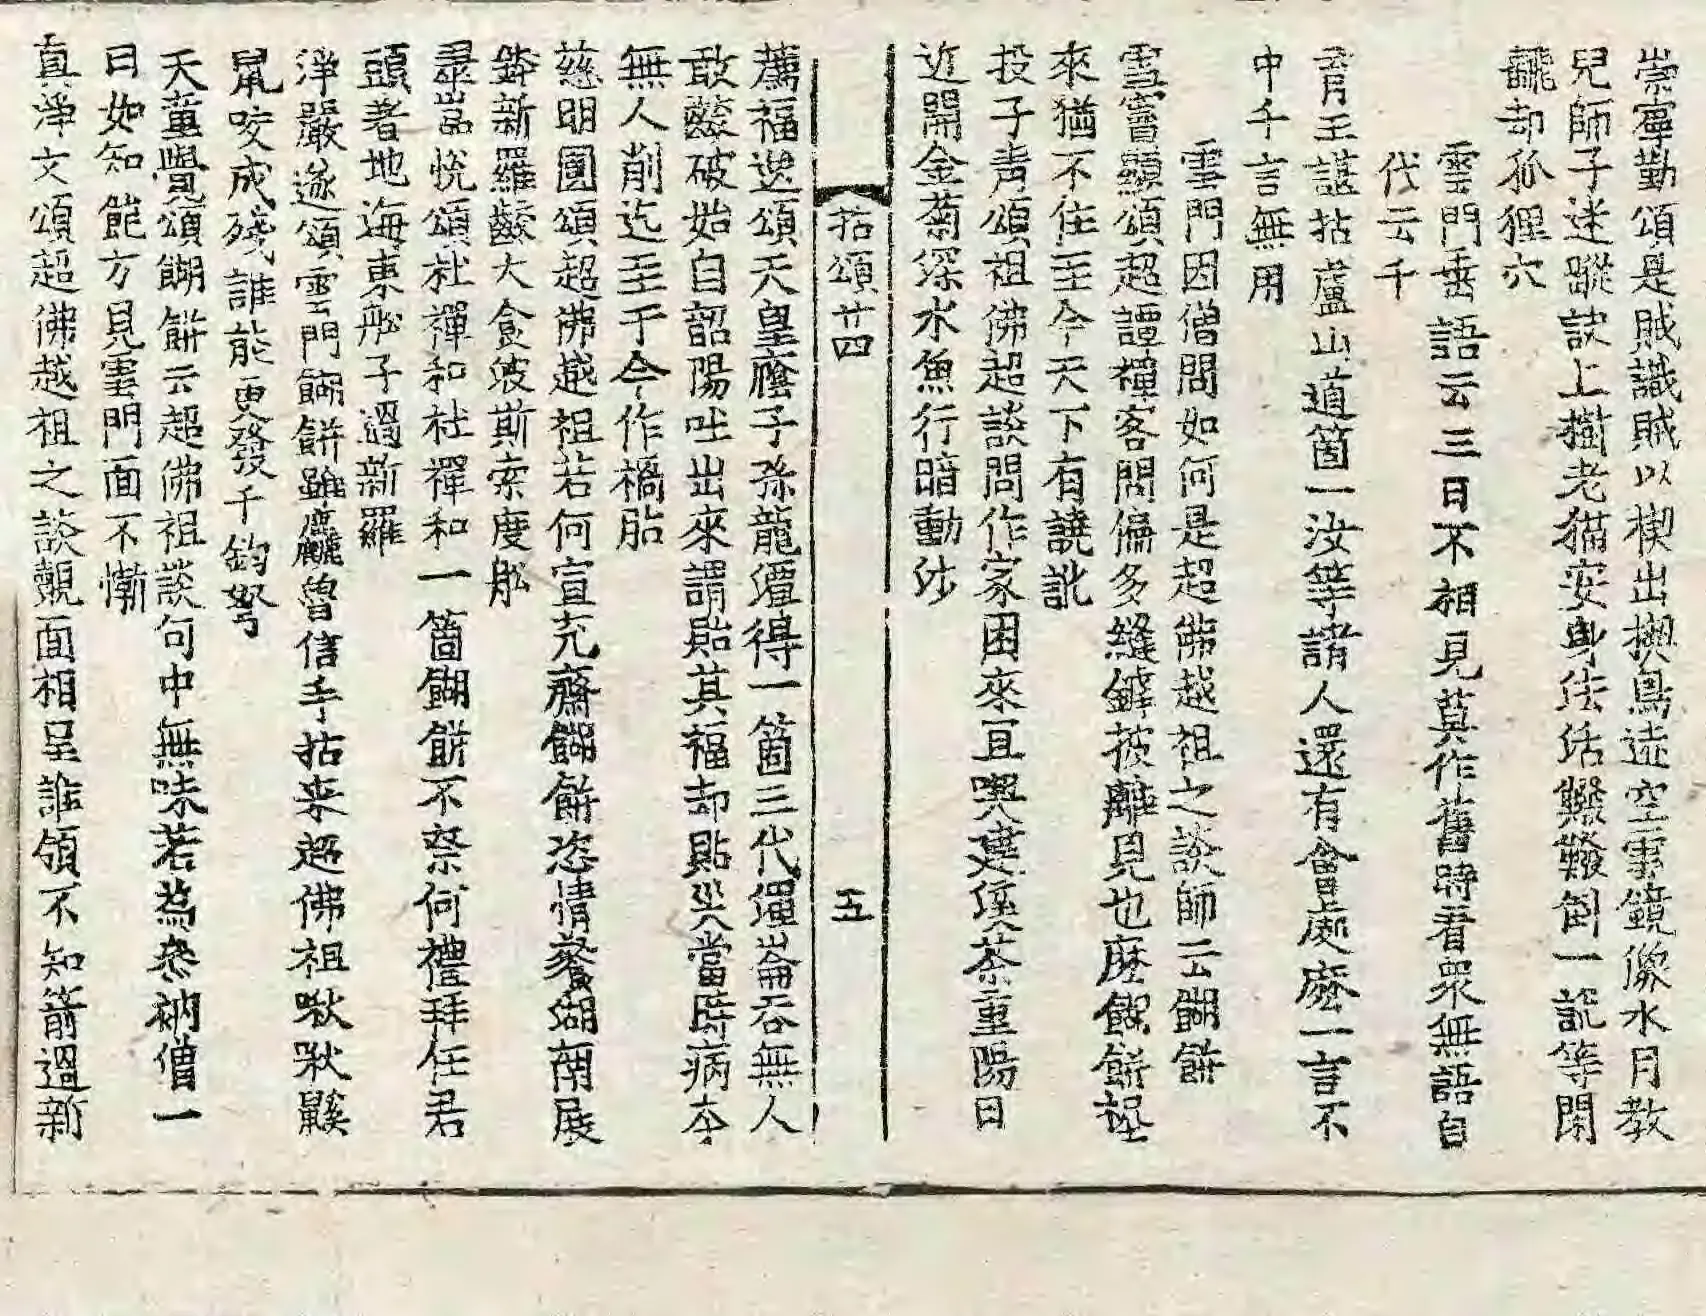 崇寧勤頌是賊識賊以楔出楔鳥迹空雲鏡像水月教
兒師子迷蹤訣上樹老猫安身法活鱍鱍倒一說等閑
飜却狐狸穴
雲門垂語云三日不相見莫作舊時看衆無語自
代云千
育王諶拈盧山道箇一汝等諸人還有會處麽一言不
中千言無用
雲門因僧問如何是超佛越祖之談師云餬餅
雪竇顯頌超譚禪客問偏多縫罅披離見也麽餬餅𡎺
來猶不住至今天下有譊訛
投子靑頌祖佛超談問作家困來且喫建溪茶重陽日
近開金菊深水魚行暗動沙
拈頌廿四 五
薦福逸頌天皇癈子孫龍潭得一箇三代渾崙吞無人
敢齩破始自韶陽吐出來謂貽其福却貽災當時病本
無人削迄至于今作禍胎
慈明圓頌超佛越祖若何宣充齋餬餅恣情飡湖南展
鉢新羅齩大食波斯索度舡
畫嵓悅頌杜禪和杜禪和一箇餬餅不奈何禮拜任君
頭著地海東舡子過新羅
淨嚴遂頌雲門餬餅雖麤曾信手拈来超佛祖啾啾鼷
鼠咬成殘誰能更發千鈞弩
天童覺頌餬餅云超佛祖談句中無味若爲叅衲僧一
日如知飽方見雲門面不慚
真淨文頌超佛越祖之談覿面相呈誰領不知箭過新